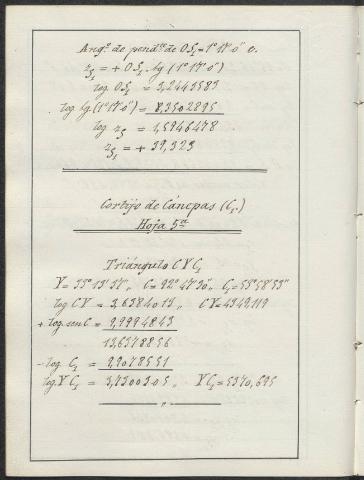 Angº. de pendte. de OS₁ = 1° 17' 0" e.
z S₁ = + OS₁ . tg (1° 17' 0")
log OS₁ = 3,2443583
log tg (1° 17' 0") = 8,3502895
log z S₁ = 1,5946478
z S₁ = + 39,323
Cortijo de Cáncpas (C₁.)
Hoja 5ª
Triángulo C Y C₁
C = 92° 47' 30" „ C₁ = 53° 58' 53"
log CY = 3,6384013 „ CY = 4349,119
+ log. sen C = 9,9994843
13,6378856
- log. C₁ = 9,9078551
log. Y C₁ = 3,7300305 „ Y C₁ = 5370,695
„